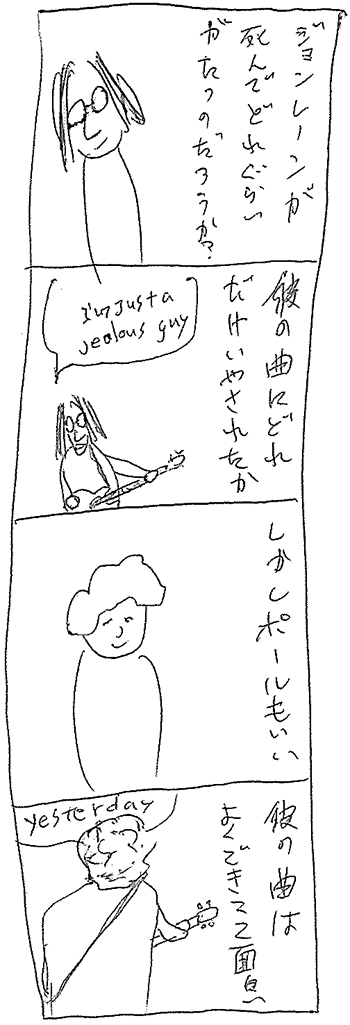 ジョンレーンが
死んでどれぐらい
がたつのだろうか?
彼の曲にどれ
だけいやされたか
I'm just a
jealous guy
しかしポールもいい
彼の曲は
よくできてて面白い
yesterday